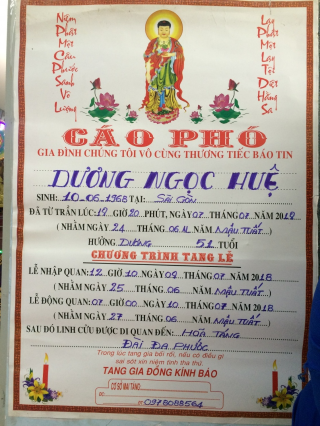 Niệm Phật Một Câu Phước Sanh Vô Lượng
Lạy Phật Một Lạy Tội Diệt Hằng Sa
CÁO PHÓ
GIA ĐÌNH CHÚNG TÔI VÔ CÙNG THƯƠNG TIẾC BÁO TIN
DƯƠNG NGỌC HUỆ
SINH: 10-06-1968 TẠI: SÀI GÒN
ĐÃ TỪ TRẦN LÚC: 17 GIỜ 20 PHÚT, NGÀY 07 THÁNG 07 NĂM 2018
( NHẰM NGÀY 24 THÁNG 05 AL NĂM MẬU TUẤT )
HƯỞNG DƯƠNG 51 TUỔI
CHƯƠNG TRÌNH TANG LỄ
LỄ NHẬP QUAN: 12 GIỜ 10 NGÀY 08 THÁNG 07 NĂM 2018
( NHẰM NGÀY 25 THÁNG 05 NĂM MẬU TUẤT )
LỄ ĐỘNG QUAN: 07 GIỜ 00 NGÀY 10 THÁNG 07 NĂM 2018
( NHẰM NGÀY 27 THÁNG 05 NĂM MẬU TUẤT )
SAU ĐÓ LINH CỮU ĐƯỢC DI QUAN ĐẾN: HỎA TÁNG
ĐẠI ĐA PHƯỚC
Trong lúc tang gia bối rối, nếu có điều gì
sai sót xin niệm tình tha thứ
TANG GIA ĐỒNG KÍNH BÁO
CƠ SỞ MAI TÁNG
ĐC:
ĐT: 0978088564